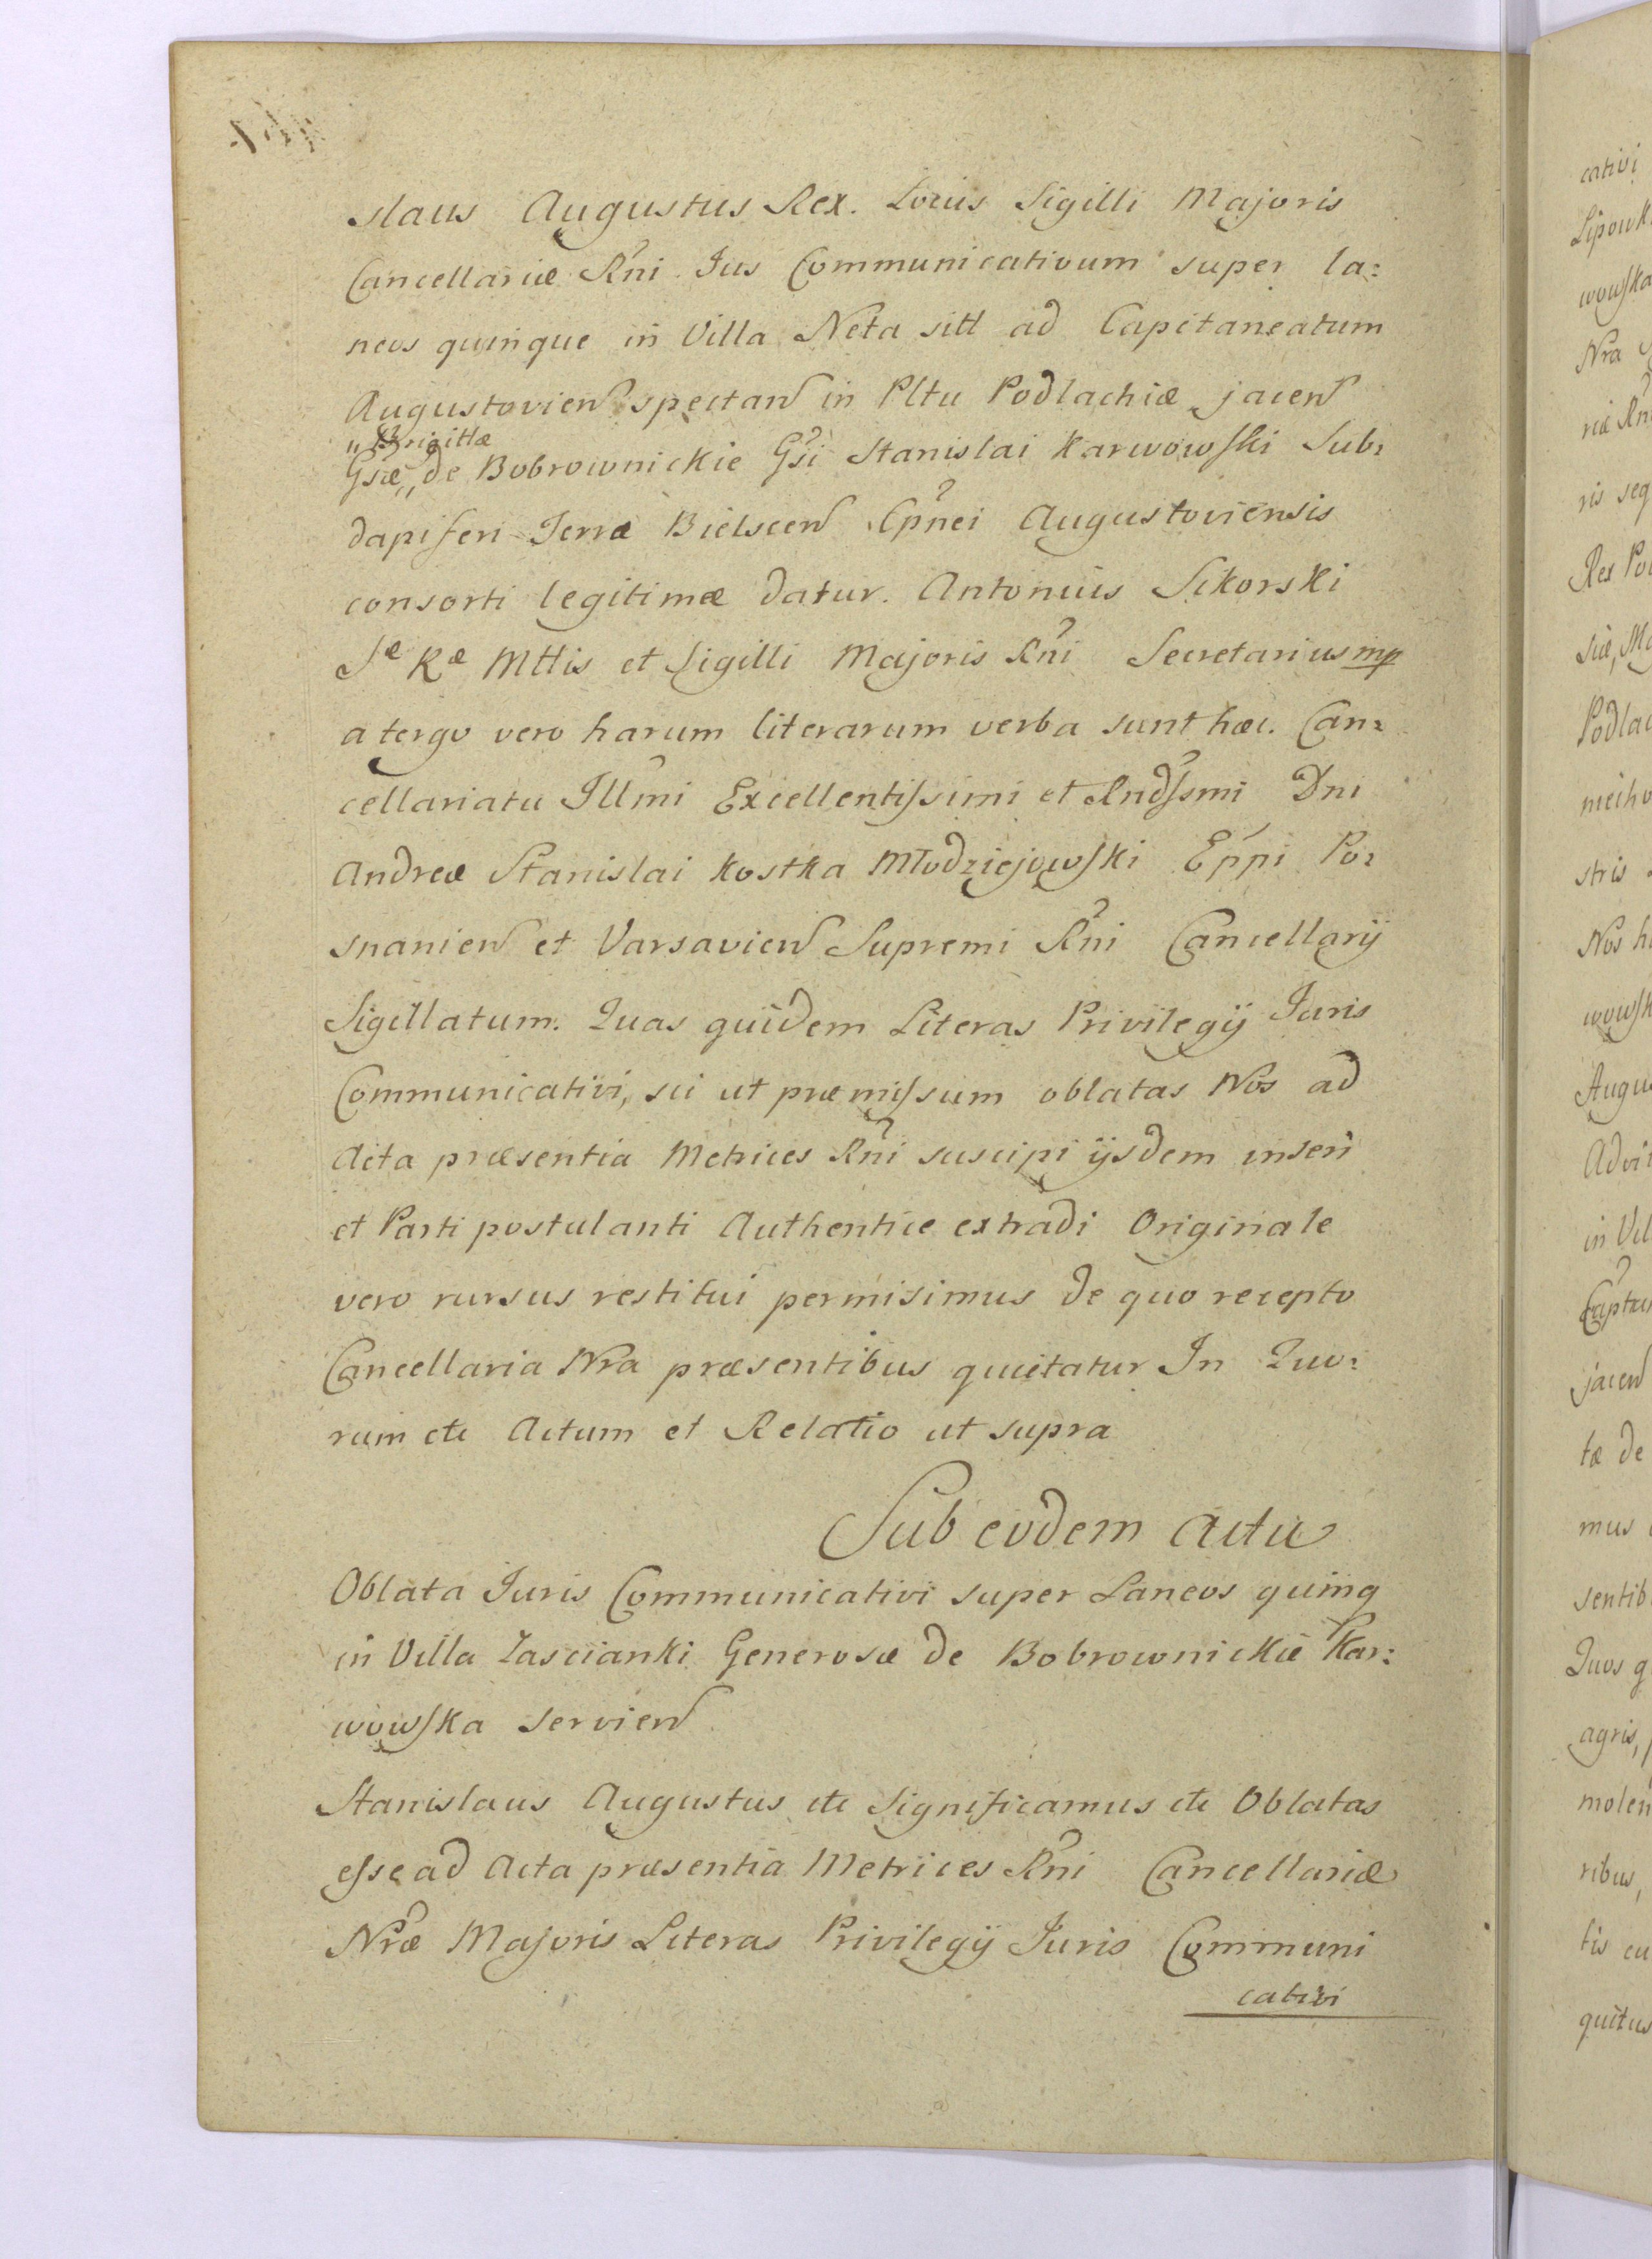 slaus Augustus Rex. Locus Sigilli Majoris
Cancellariæ Rni Jus Communicativum super la:
neos quinque in Villa Neta sitt ad Capitaneatum
Augustovien spectan in Pltu Podlachiæ jacen
Gsæ „Brigittæ„ de Bobrownickie Gsi Stanislai Karwowski Sub:
dapiferi Terræ Bielscen Cpnei Augustoviensis
consorti legitimæ datur. Antonius Sikorski
Sæ Ræ Mttis et Sigilli Majoris Rni Secretarius mp
a tergo vero harum literarum verba sunt hæc. Can:
cellariatu Illmi Excellentissimi et Rndssmi Dni
Andreæ Stanislai Kostka Młodziejowski Eppi Po:
snanien et Varsavien Supremi Rni Cancellarij
Sigillatum. Quas quidem Literas Privilegij Juris
Communicativi, sic ut præmissum oblatas Nos ad
Acta præsentia Metrices Rni suscipi ijsdem inseri
et Parti postulanti Authentice extradi Originale
vero rursus restitui permisimus de quo recepto
Cancellaria Nra præsentibus quietatur In Quo:
rum etc Actum et Relatio ut supra
Sub eodem Actu
Oblata Juris Communicativi super Laneos quinq
in Villa Zascianki Generosæ de Bobrownickie Kar:
wowska servien
Stanislaus Augustus etc Significamus etc Oblatas
esse ad Acta præsentia Metrices Rni Cancellariæ
Nræ Majoris Literas Privilegij Juris Communi
cativi